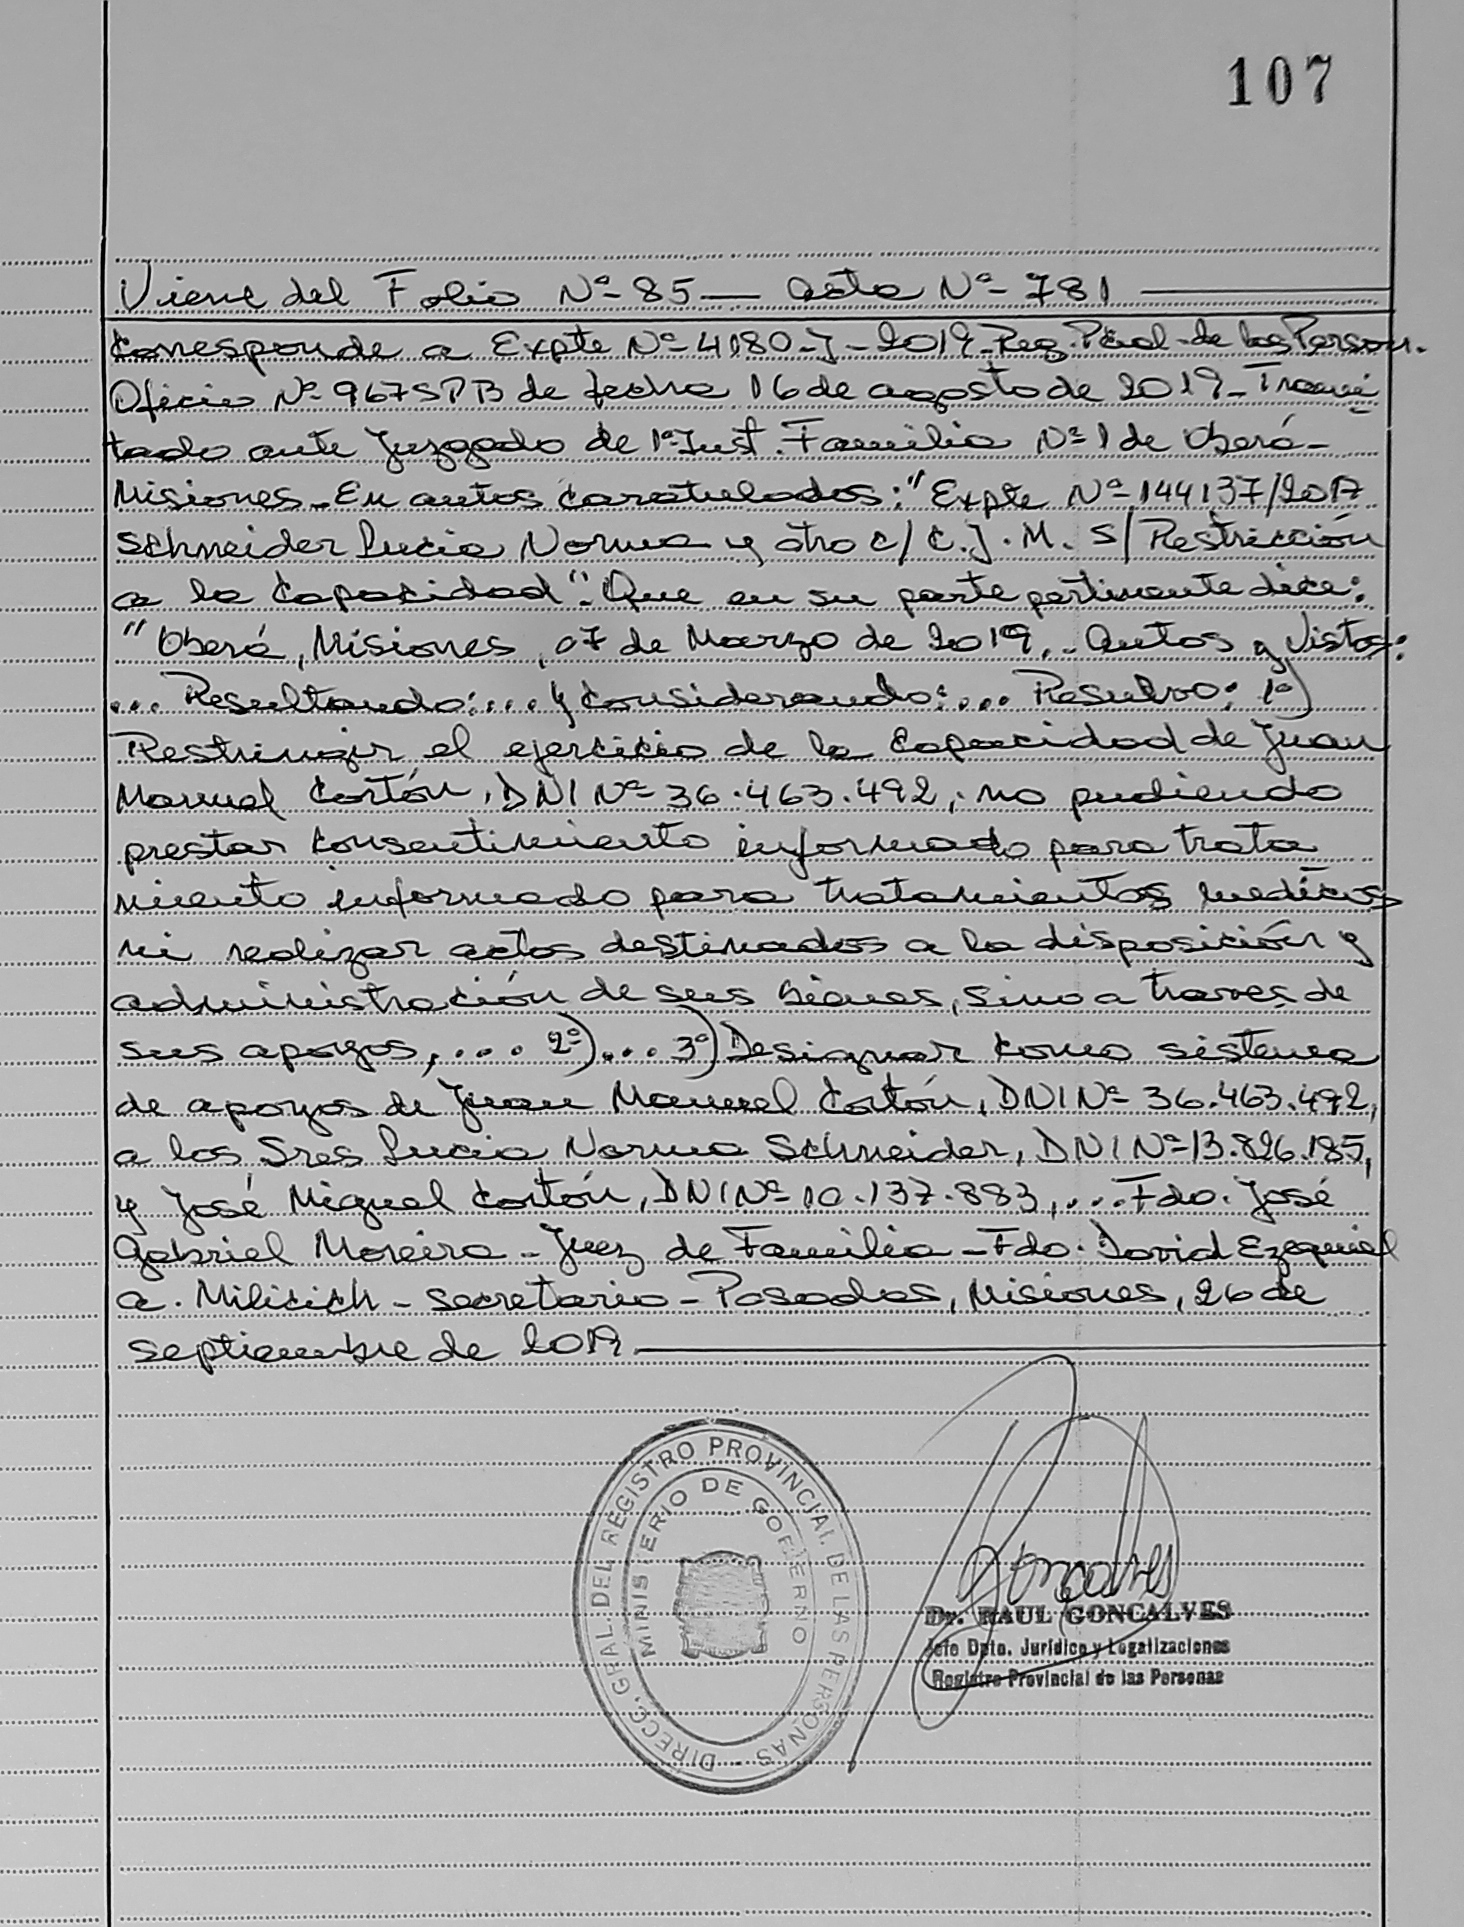 107
Viene del Folio Nº 85 — Acta Nº 781
Corresponde a Expte Nº 4180-J-2019-Reg. Pcial. de las Person.
Oficio Nº 967SPB de fecha 16 de agosto de 2019-Trami
tado ante Juzgado de 1º Inst. Familia Nº 1 de Oberá-
Misiones-En autos caratulados: "Expte Nº 144137/2017
Schneider Lucia Norma y otro c/ C.J.M. S/ Restricción
a la Capacidad". Que en su parte pertinente dice:
"Oberá, Misiones, 07 de Marzo de 2019.. Autos y Vistos:
... Resultando:... y Considerando:... Resulvo: 1º)
Restringir el ejercicio de la Capacidad de Juan
Manuel Cortón, DNI Nº 36.463.492, no pudiendo
prestar Consentimiento informado para trata
miento informado para tratamientos medicos
ni realizar actos destinados a la disposición y
administración de sus bienes, sino a traves de
sus apoyos,... 2º)... 3º) Designar como sistema
de apoyos de Juan Manuel Cortón, DNI Nº 36.463.492,
a los Sres Lucia Norma Schneider, DNI Nº 13.826.185,
y José Miguel Cortón, DNI Nº 10.137.883,... Fdo. José
Gabriel Moreira - Juez de Familia - Fdo. David Ezequiel
A. Milicich - Secretario - Posadas, Misiones, 26 de
septiembre de 2019
DIRECC. GRAL. DEL REGISTRO PROVINCIAL DE LAS PERSONAS -
MINISTERIO DE GOBIERNO
Goncalves
Dr. RAUL GONCALVES
Jefe Dpto. Jurídico y Legalizaciones
Registro Provincial de las Personas